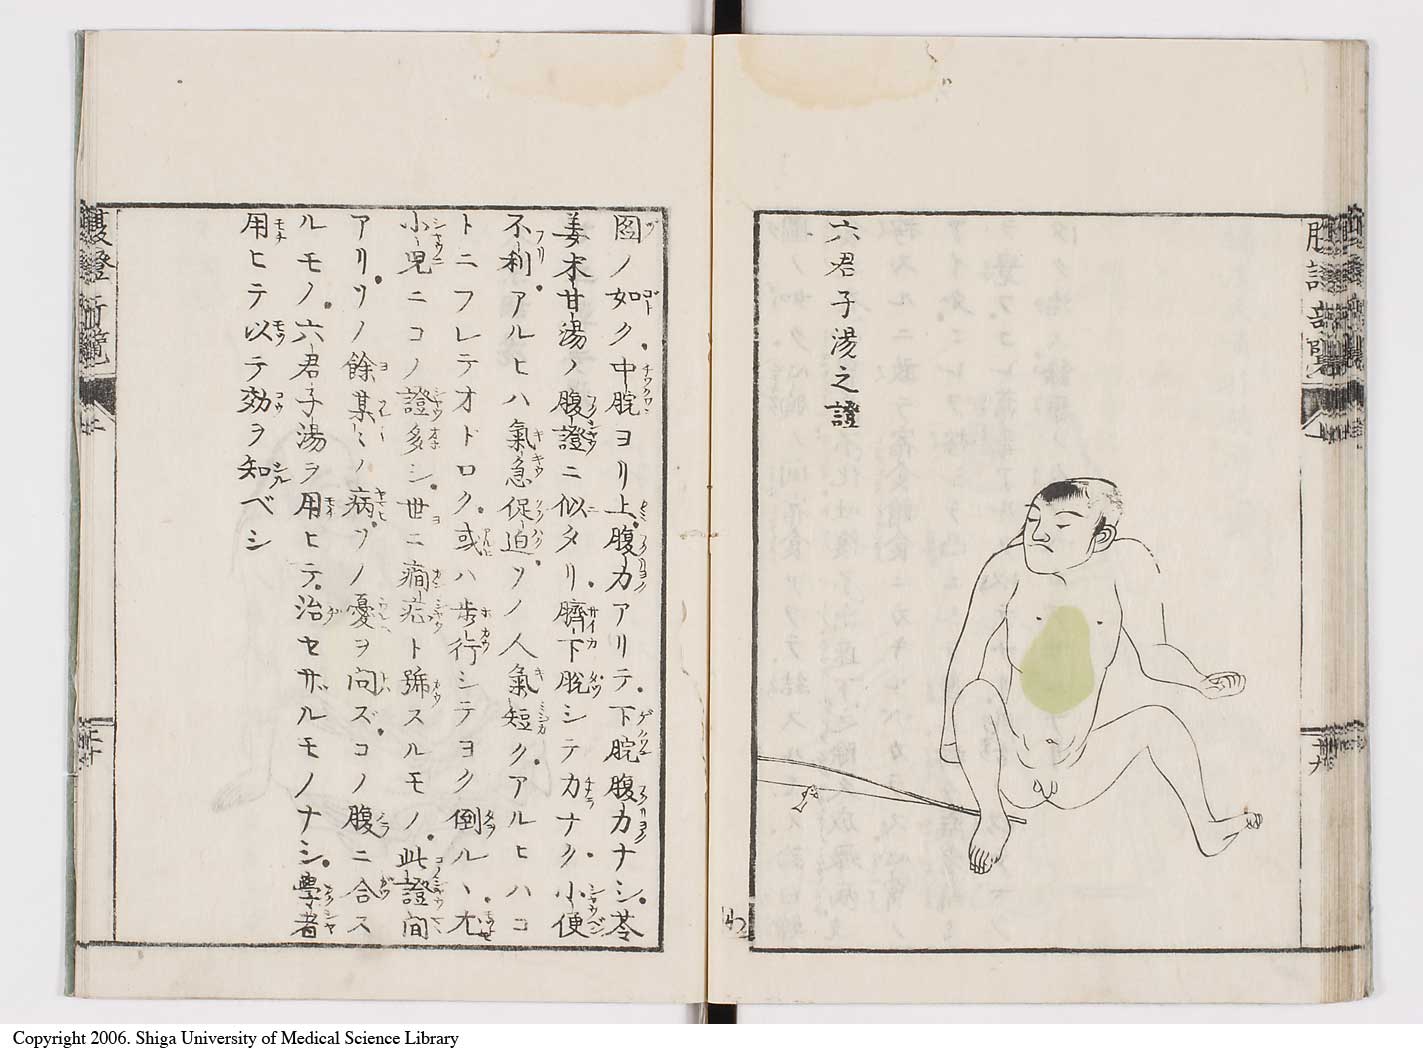 六君子湯之證
圖ノ如ク中脘ヨリ上腹力アリテ下脘腹力ナシ苓
姜朮甘湯ノ腹證ニ似タリ臍下脱シテカナク小便
不利アルヒハ氣急促迫ソノ人氣短クアルヒハコ
トニフレテオドロク或ハ歩行シテヨク倒ル丶尤
小児ニコノ證多シ世ニ癇症ト號スルモノ此證間
アリソノ餘某〻ノ病ソノ憂ヲ问ズコノ腹ニ合ス
ルモノ六君子湯ヲ用ヒテ治セザルモノナシ學者
用ヒテ以テ効ヲ知ベシ
Copyright 2006. Shiga University of Medical Science Library